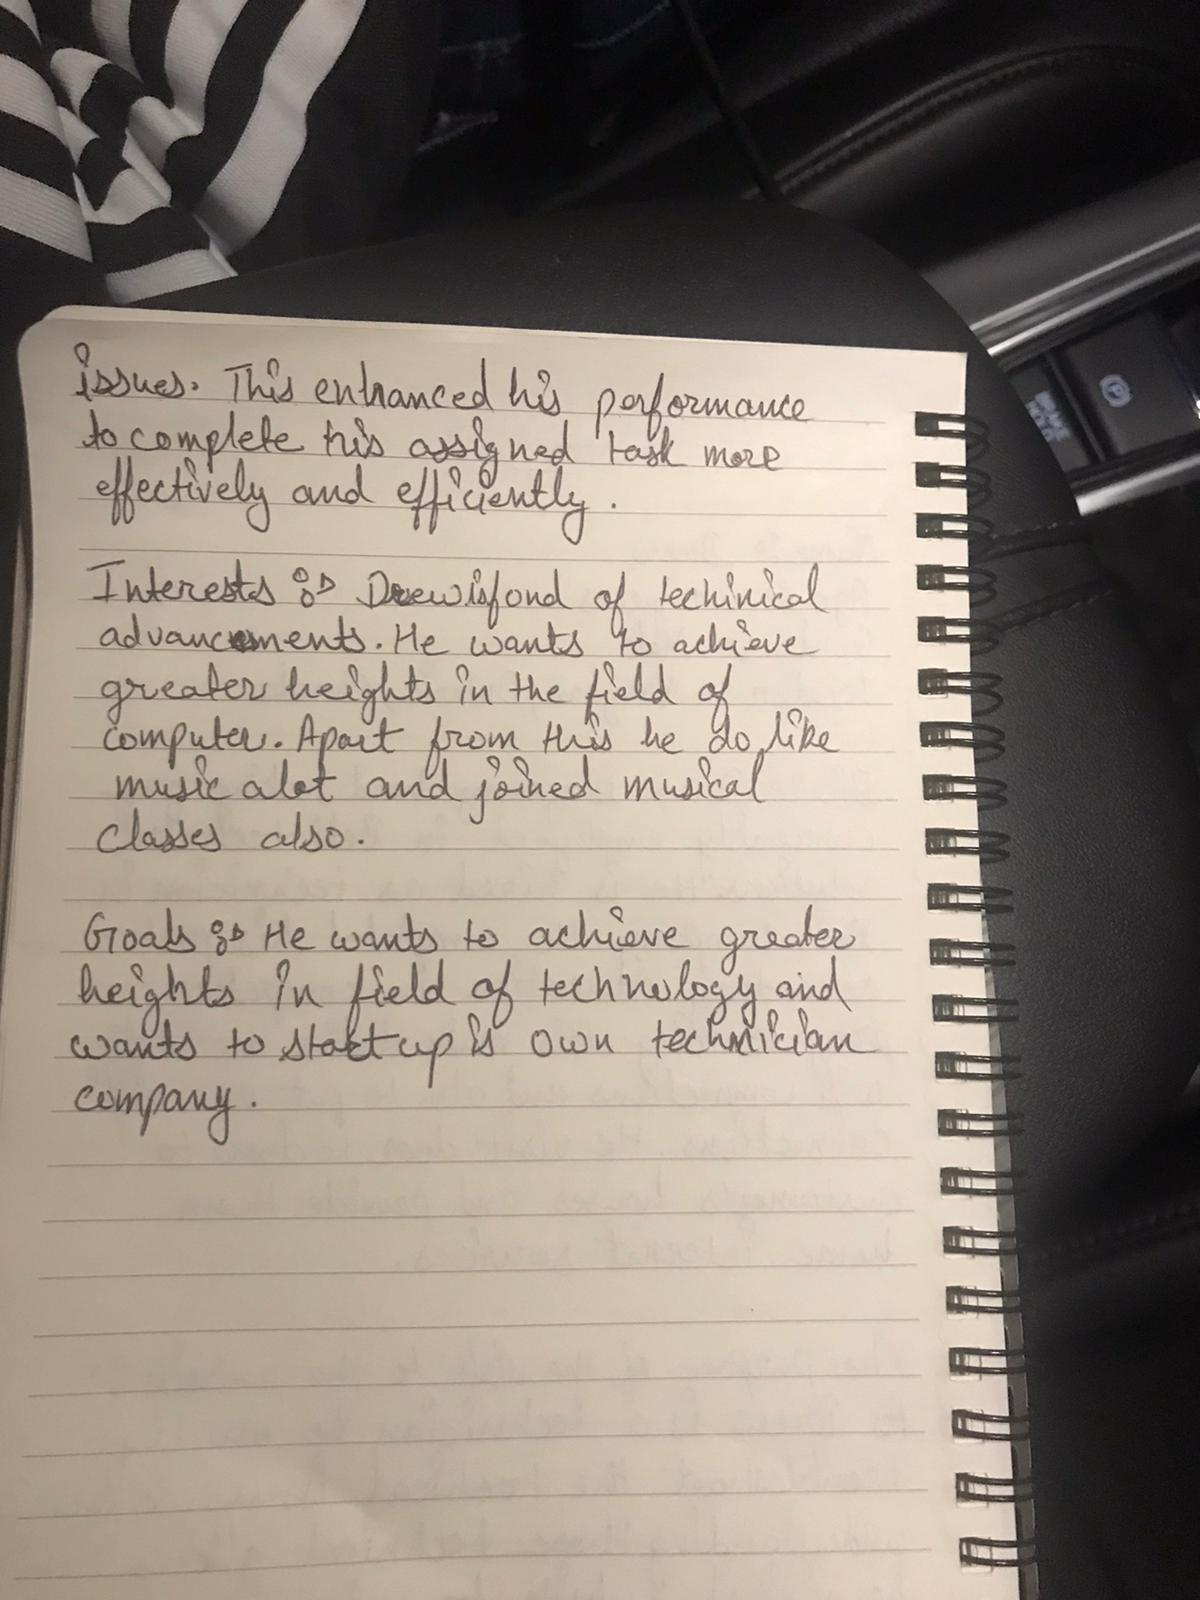 issues. This enhanced his performance
to complete his assigned task more
effectively and efficiently.
Interests :- Drew is fond of techinical
advancements. He wants to achieve
greater heights in the field of
computer. Apart from this he do like
music alot and joined musical
classes also.
Goals :- He wants to achieve greater
heights in field of technology and
wants to start up is own technician
company.
BRAKE
HOLD
P